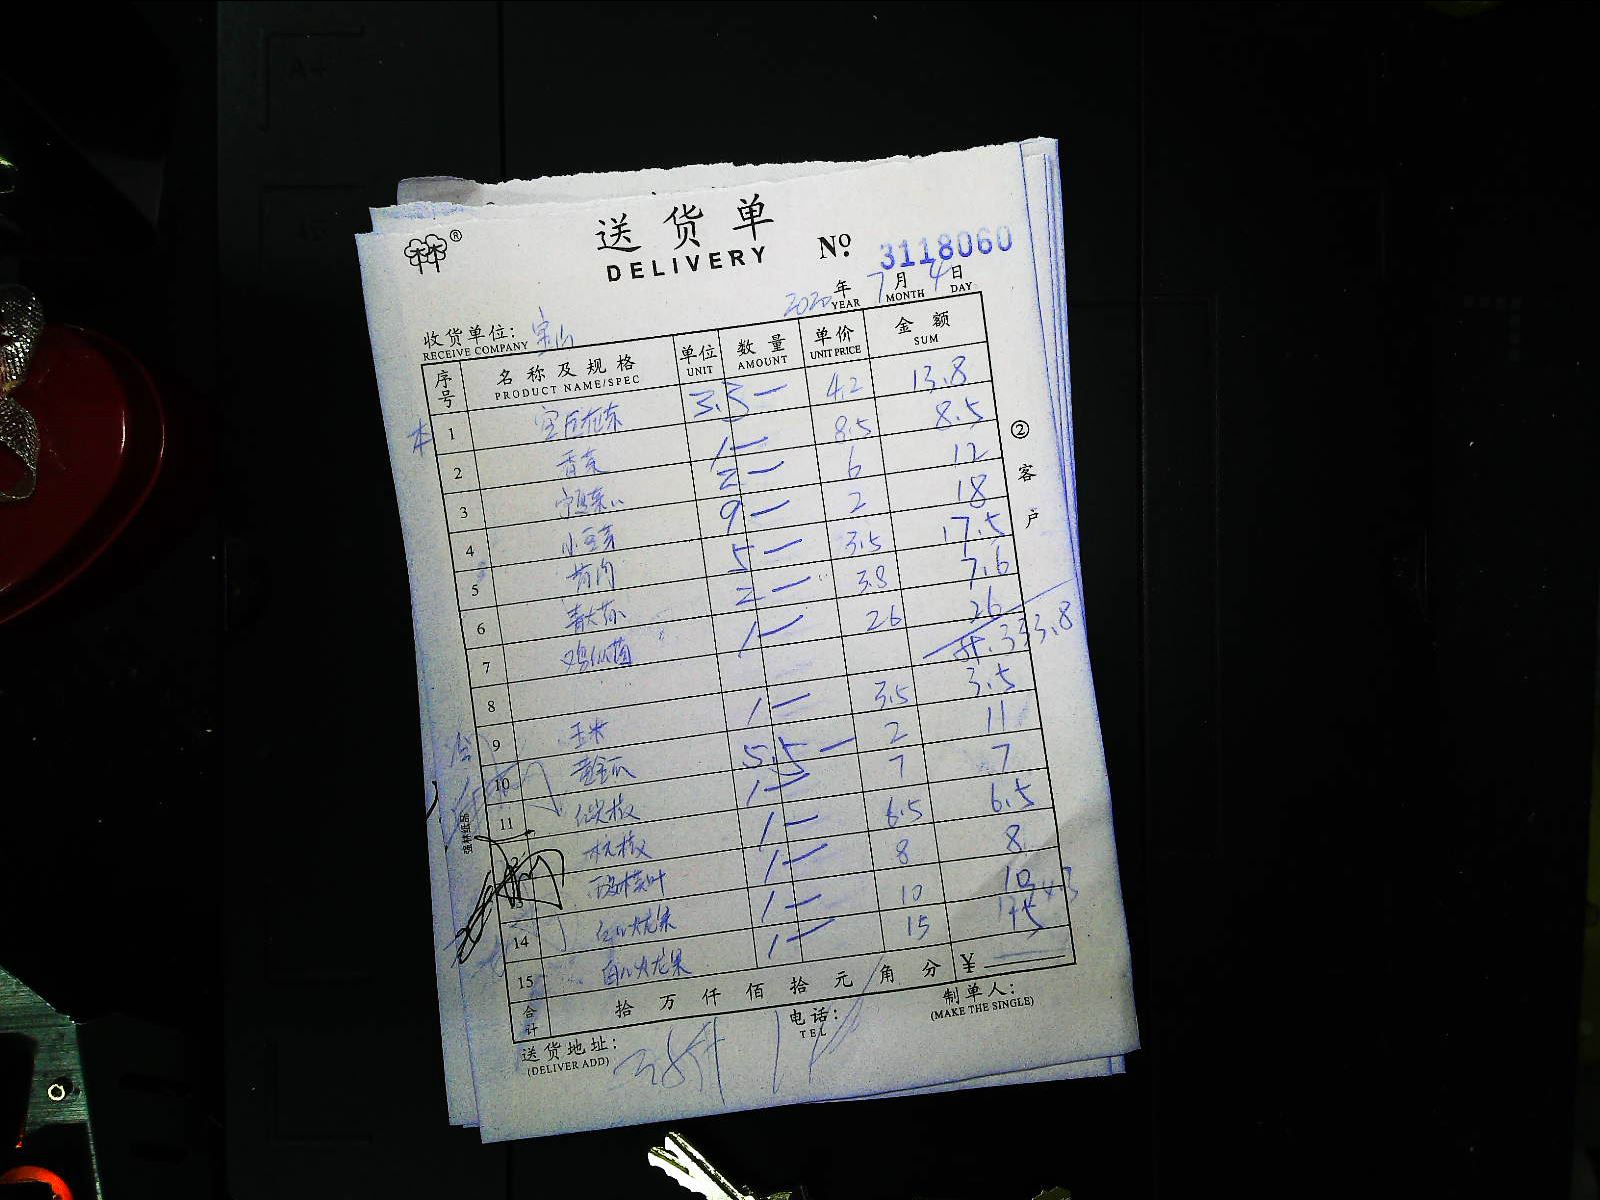 送货单
DELIVERY
№ 3118060
2020年 7月 4日
YEAR MONTH DAY
收货单位：宝山
RECEIVE COMPANY
序号 名称及规格 单位 数量 单价 金额
PRODUCT NAME/SPEC UNIT AMOUNT UNIT PRICE SUM
1 3.3 — 4.2 13.8
2 香菜 1 — 8.5 8.5
3 2 — 6 12
4 小豆芽 9 — 2 18
5 5 — 3.5 17.5
6 2 — 3.8 7.6
7 鸡枞菌 1 — 26 26
8 333.8
9 玉米 1 — 3.5 3.5
10 黄金瓜 5.5 — 2 11
11 1 — 7 7
杭椒 1 — 6.5 6.5
13 1 — 8 8
14 红心火龙果 1 — 10 10
15 白心火龙果 1 — 15 15
合计 拾 万 仟 佰 拾 元 角 分 ¥
送货地址：
(DELIVER ADD)
电话：
TEL
制单人：
(MAKE THE SINGLE)
②客户